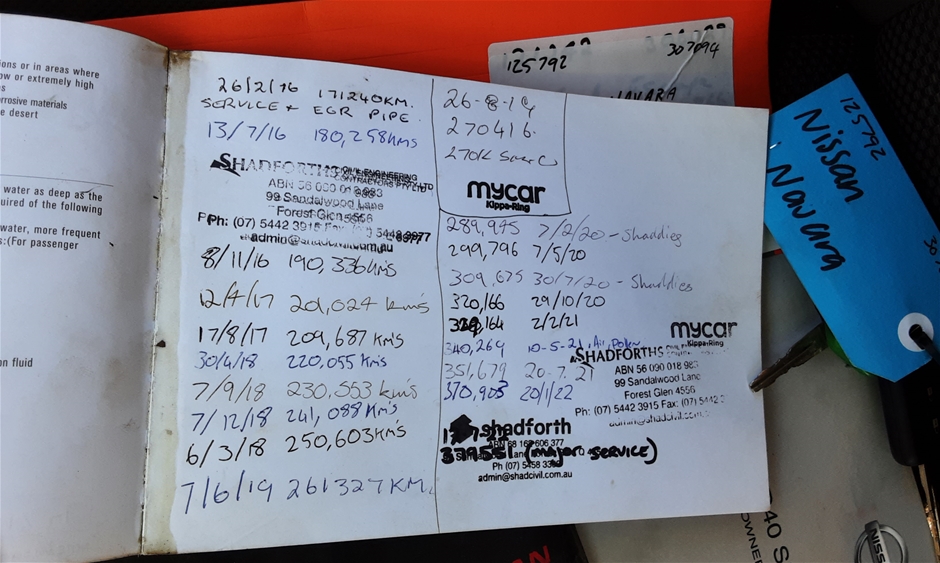 ions or in areas where
ow or extremely high
rrosive materials
e desert
water as deep as the
uired of the following
water, more frequent
s:(For passenger
n fluid
26/2/16 171240KM.
SERVICE + EGR PIPE.
13/7/16 180,258kms
SHADFORTHS CIVIL ENGINEERING
CONTRACTORS PTY LTD
ABN 56 090 018 983
99 Sandalwood Lane
Forest Glen 4556
Ph: (07) 5442 3915 Fax
admin@shadcivil.com.au
8/11/16 190,336kms
12/4/17 201,024 km's
17/8/17 209,687 km's
30/4/18 220,055 km's
7/9/18 230,553 km's
7/12/18 241,088 km's
6/3/18 250,603km's
7/6/19 261327KM.
26-8-19
270416.
270K
mycar
Kippa-Ring
289,975 7/2/20 - Shaddies
299,796 7/5/20
309,675 30/7/20 - Shaddies
320,166 29/10/20
164 2/2/21
340,269 10-5-21, Air, Pollen
351,679 20.7.21
370,903 20/1/22
mycar
Kippa-Ring
SHADFORTHS
ABN 56 090 018 983
99 Sandalwood Lane
Forest Glen 4556
Ph: (07) 5442 3915 Fax: (07) 5442
admin@shadcivil.com
shadforth
(major service)
Ph (07) 5458
admin@shadcivil.com.au
125792
307094
NAVARA
125792
Nissan
Navara
40 S
OWNER
NISS